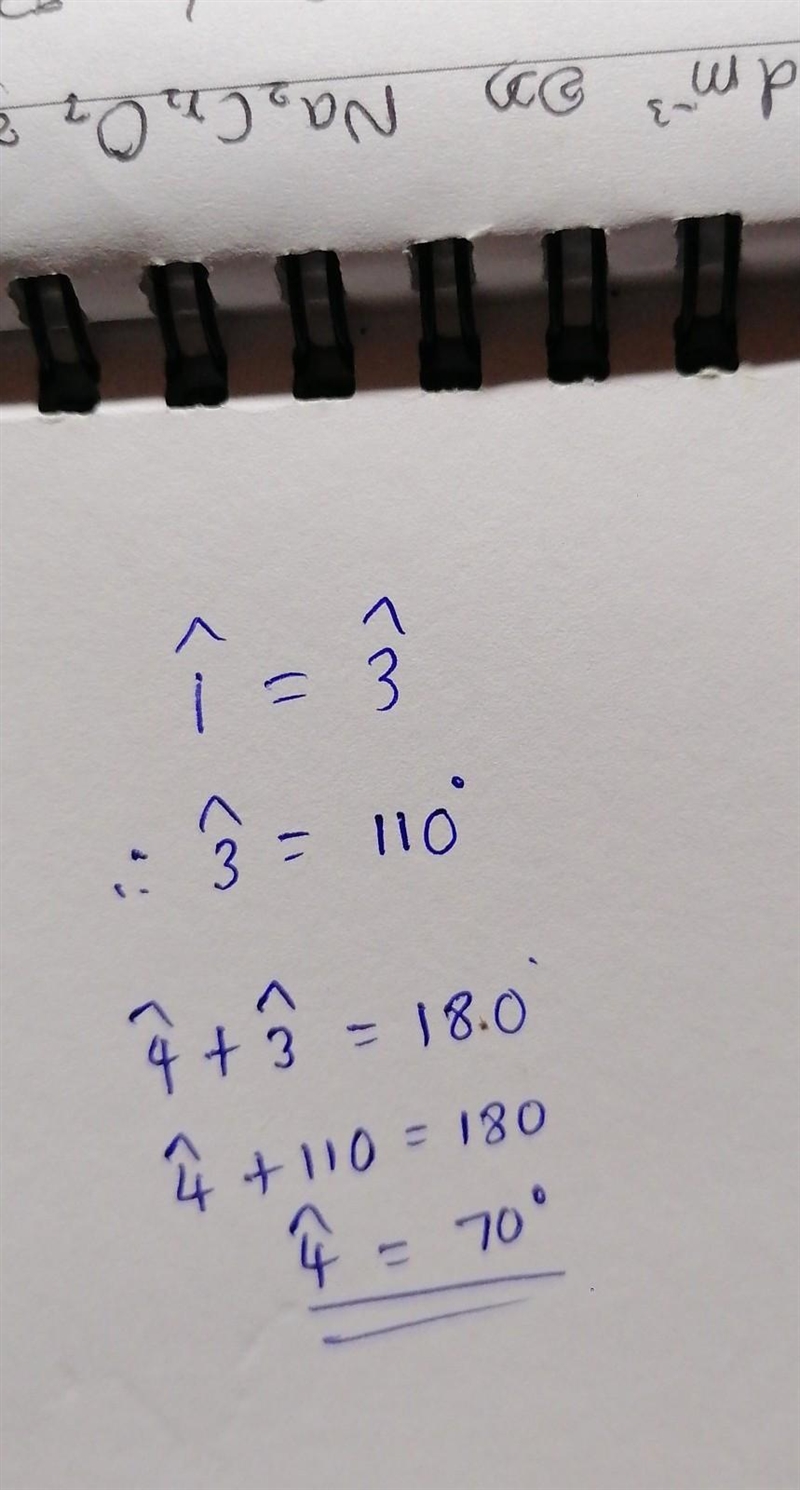 dm⁻³ Na₂Cr₂O₇
1̂ = 3̂
∴ 3̂ = 110°
4̂ + 3̂ = 180°
4̂ + 110 = 180
4̂ = 70°